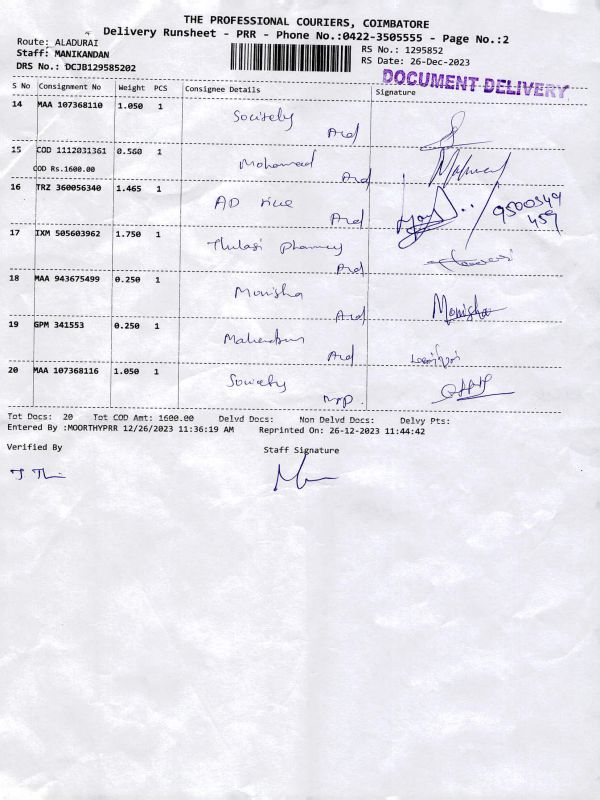 THE PROFESSIONAL COURIERS, COIMBATORE
Delivery Runsheet - PRR - Phone No.:0422-3505555 - Page No.:2
Route: ALADURAI
RS No.: 1295852
Staff: MANIKANDAN
RS Date: 26-Dec-2023
DRS No.: DCJB129585202
DOCUMENT DELIVERY
S No Consignment No Weight PCS Consignee Details Signature
14 MAA 107368110 1.050 1
Ard
15 COD 1112031361 0.560 1 Mohamed
COD Rs.1600.00 Ard
16 TRZ 360056340 1.465 1 AD
Ard
9500549
459
17 IXM 505603962 1.750 1 Thulasi pharmacy
Ard
18 MAA 943675499 0.250 1 Monisha Monisha
Ard
19 GPM 341553 0.250 1
Ard
20 MAA 107368116 1.050 1
Tot Docs: 20 Tot COD Amt: 1600.00 Delvd Docs: Non Delvd Docs: Delvy Pts:
Entered By :MOORTHYPRR 12/26/2023 11:36:19 AM Reprinted On: 26-12-2023 11:44:42
Verified By Staff Signature